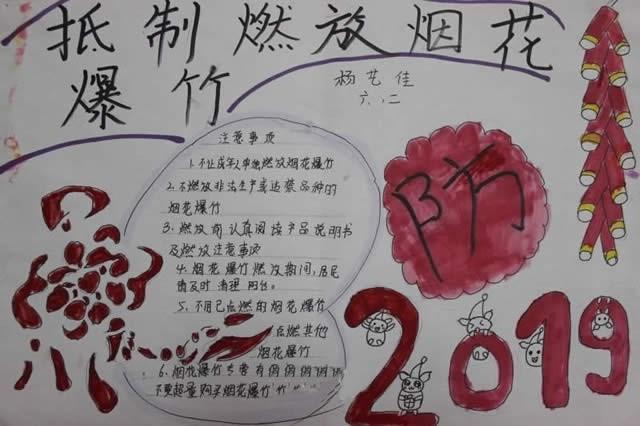 抵制燃放烟花
爆竹
杨艺佳
六.二
注意事项
1.不让成年人中燃放烟花爆竹
2.不燃放非法生产或违禁品种的
烟花爆竹
3.燃放前认真阅读产品说明书
及燃放注意事项
4.烟花爆竹燃放期间,居民
请及时清理阳台。
5.不用已点燃的烟花爆竹
点燃其他
烟花爆竹
6.烟花爆竹
不要超量购买烟花爆竹
防
2019